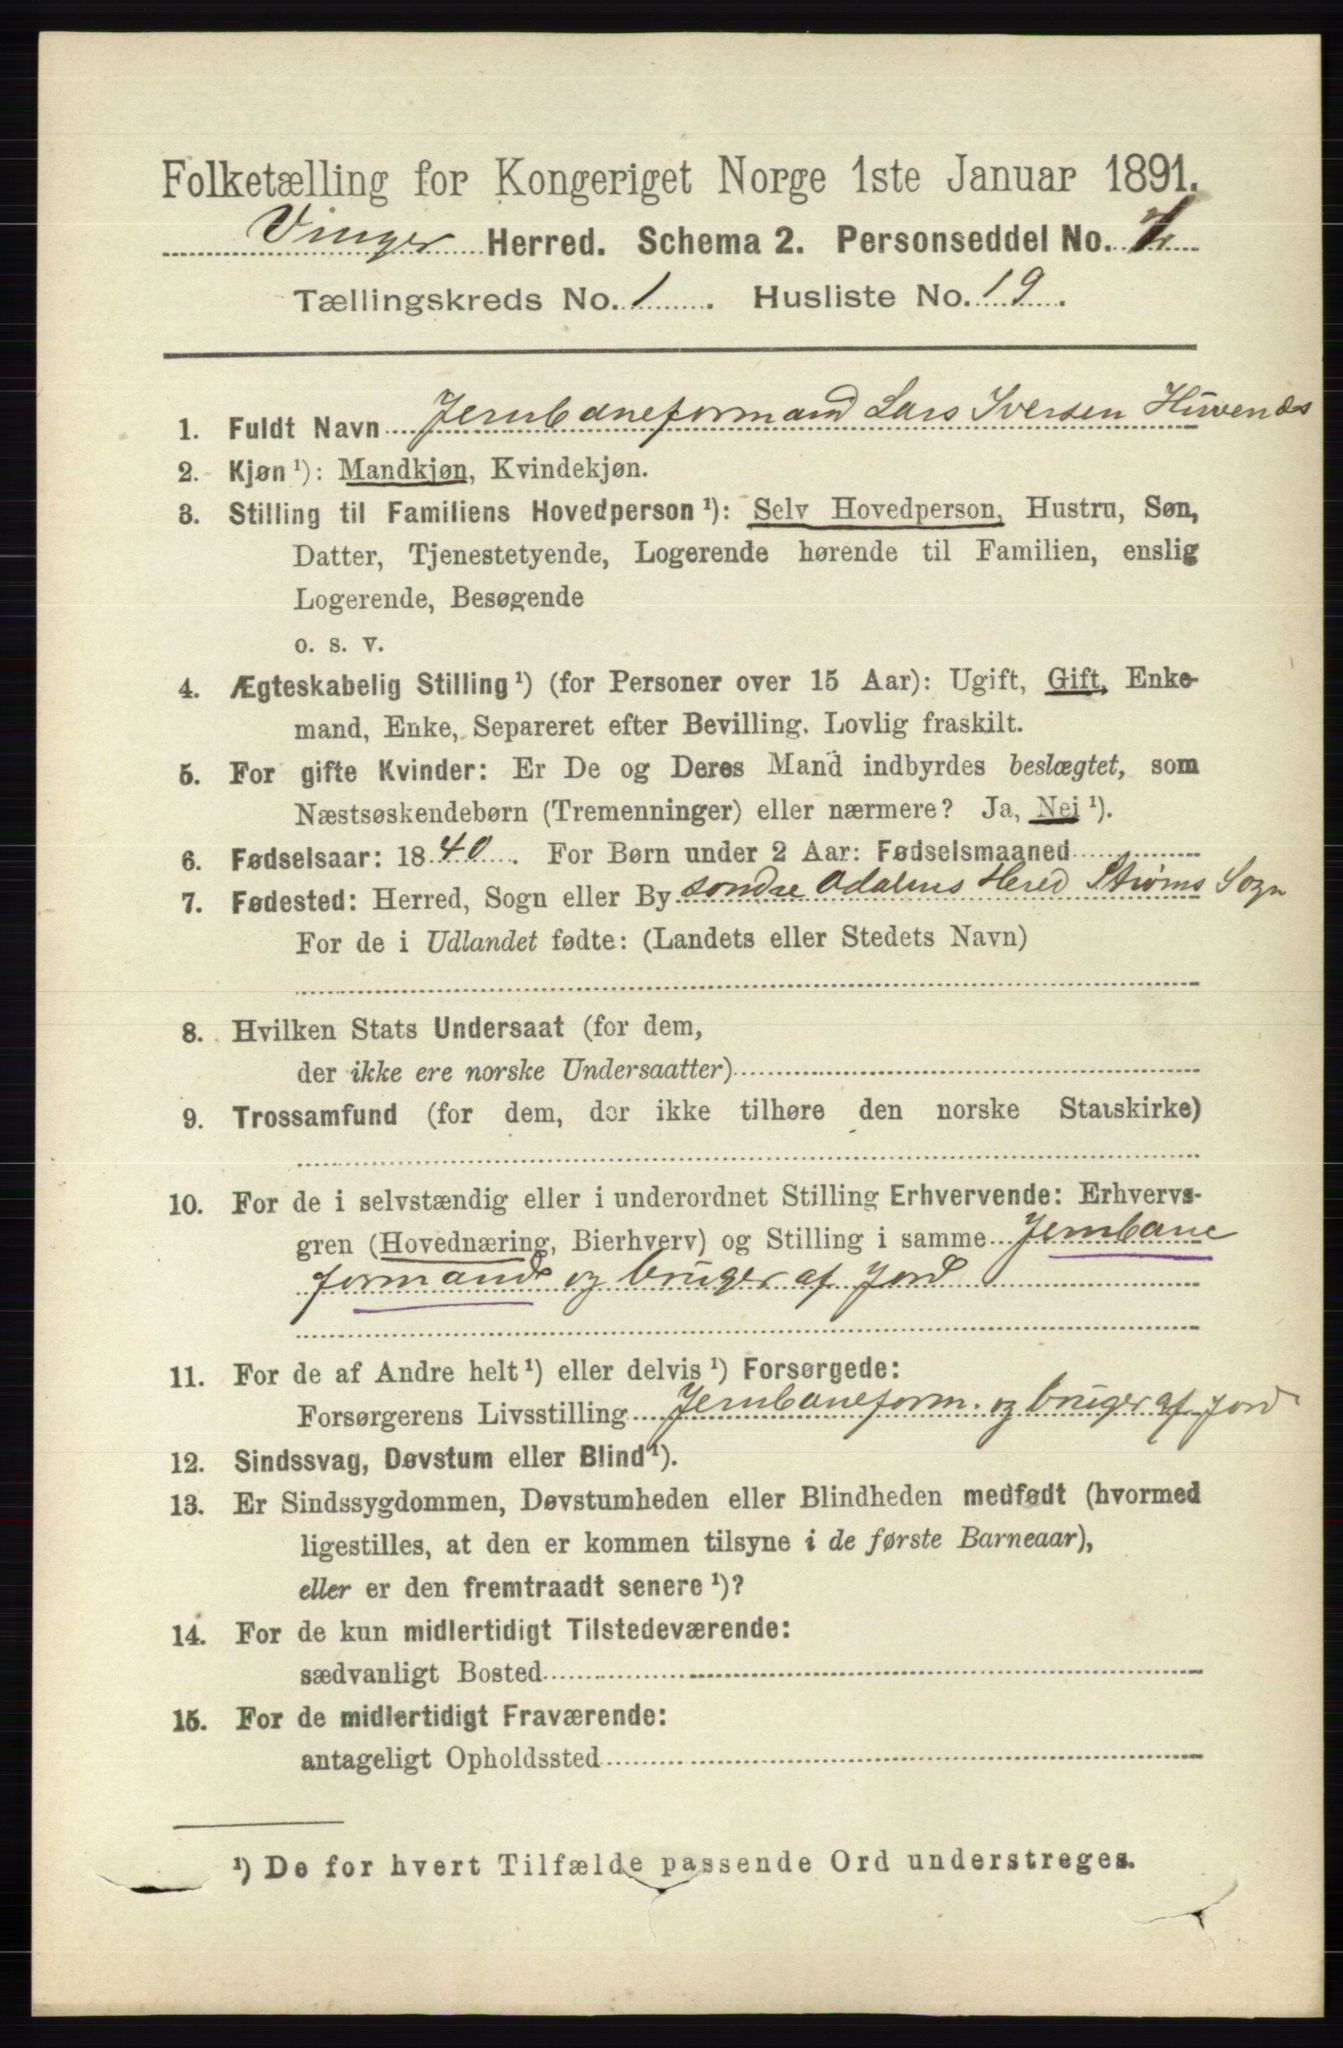 Folketælling for Kongeriget Norge 1ste Januar 1891.
Vinger Herred. Schema 2. Personseddel No.
Tællingskreds No. 1. Husliste No. 19.
1. Fuldt Navn Jernbaneformand Lars Iversen
2. Kjøn ¹): Mandkjøn, Kvindekjøn.
3. Stilling til Familiens Hovedperson ¹): Selv Hovedperson, Hustru, Søn,
Datter, Tjenestetyende, Logerende hørende til Familien, enslig
Logerende, Besøgende
o. s. v.
4. Ægteskabelig Stilling ¹) (for Personer over 15 Aar): Ugift, Gift, Enke-
mand, Enke, Separeret efter Bevilling. Lovlig fraskilt.
5. For gifte Kvinder: Er De og Deres Mand indbyrdes beslægtet, som
Næstsøskendebørn (Tremenninger) eller nærmere? Ja, Nei ¹).
6. Fødselsaar: 1840. For Børn under 2 Aar: Fødselsmaaned
7. Fødested: Herred, Sogn eller By søndre Odalens Hered Strøms Sogn
For de i Udlandet fødte: (Landets eller Stedets Navn)
8. Hvilken Stats Undersaat (for dem,
der ikke ere norske Undersaatter)
9. Trossamfund (for dem, der ikke tilhøre den norske Statskirke)
10. For de i selvstændig eller i underordnet Stilling Erhvervende: Erhvervs-
gren (Hovednæring, Bierhverv) og Stilling i samme Jernbane
formand og bruger af Jord
11. For de af Andre helt ¹) eller delvis ¹) Forsørgede:
Forsørgerens Livsstilling Jernbaneform. og bruger af jord
12. Sindssvag, Døvstum eller Blind ¹).
13. Er Sindssygdommen, Døvstumheden eller Blindheden medfødt (hvormed
ligestilles, at den er kommen tilsyne i de første Barneaar),
eller er den fremtraadt senere ¹)?
14. For de kun midlertidigt Tilstedeværende:
sædvanligt Bosted
15. For de midlertidigt Fraværende:
antageligt Opholdssted
¹) De for hvert Tilfælde passende Ord understreges.